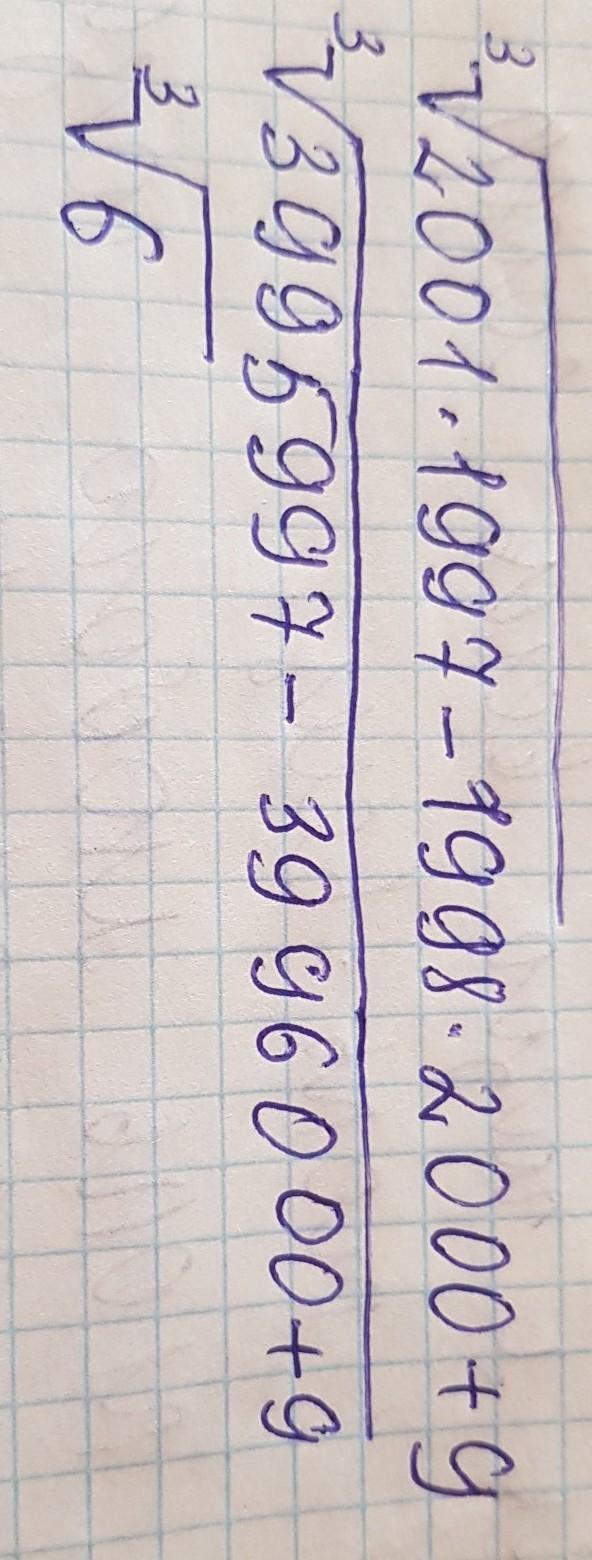 ∛2001·1997-1998·2000+9
∛3995997-3996000+9
∛6